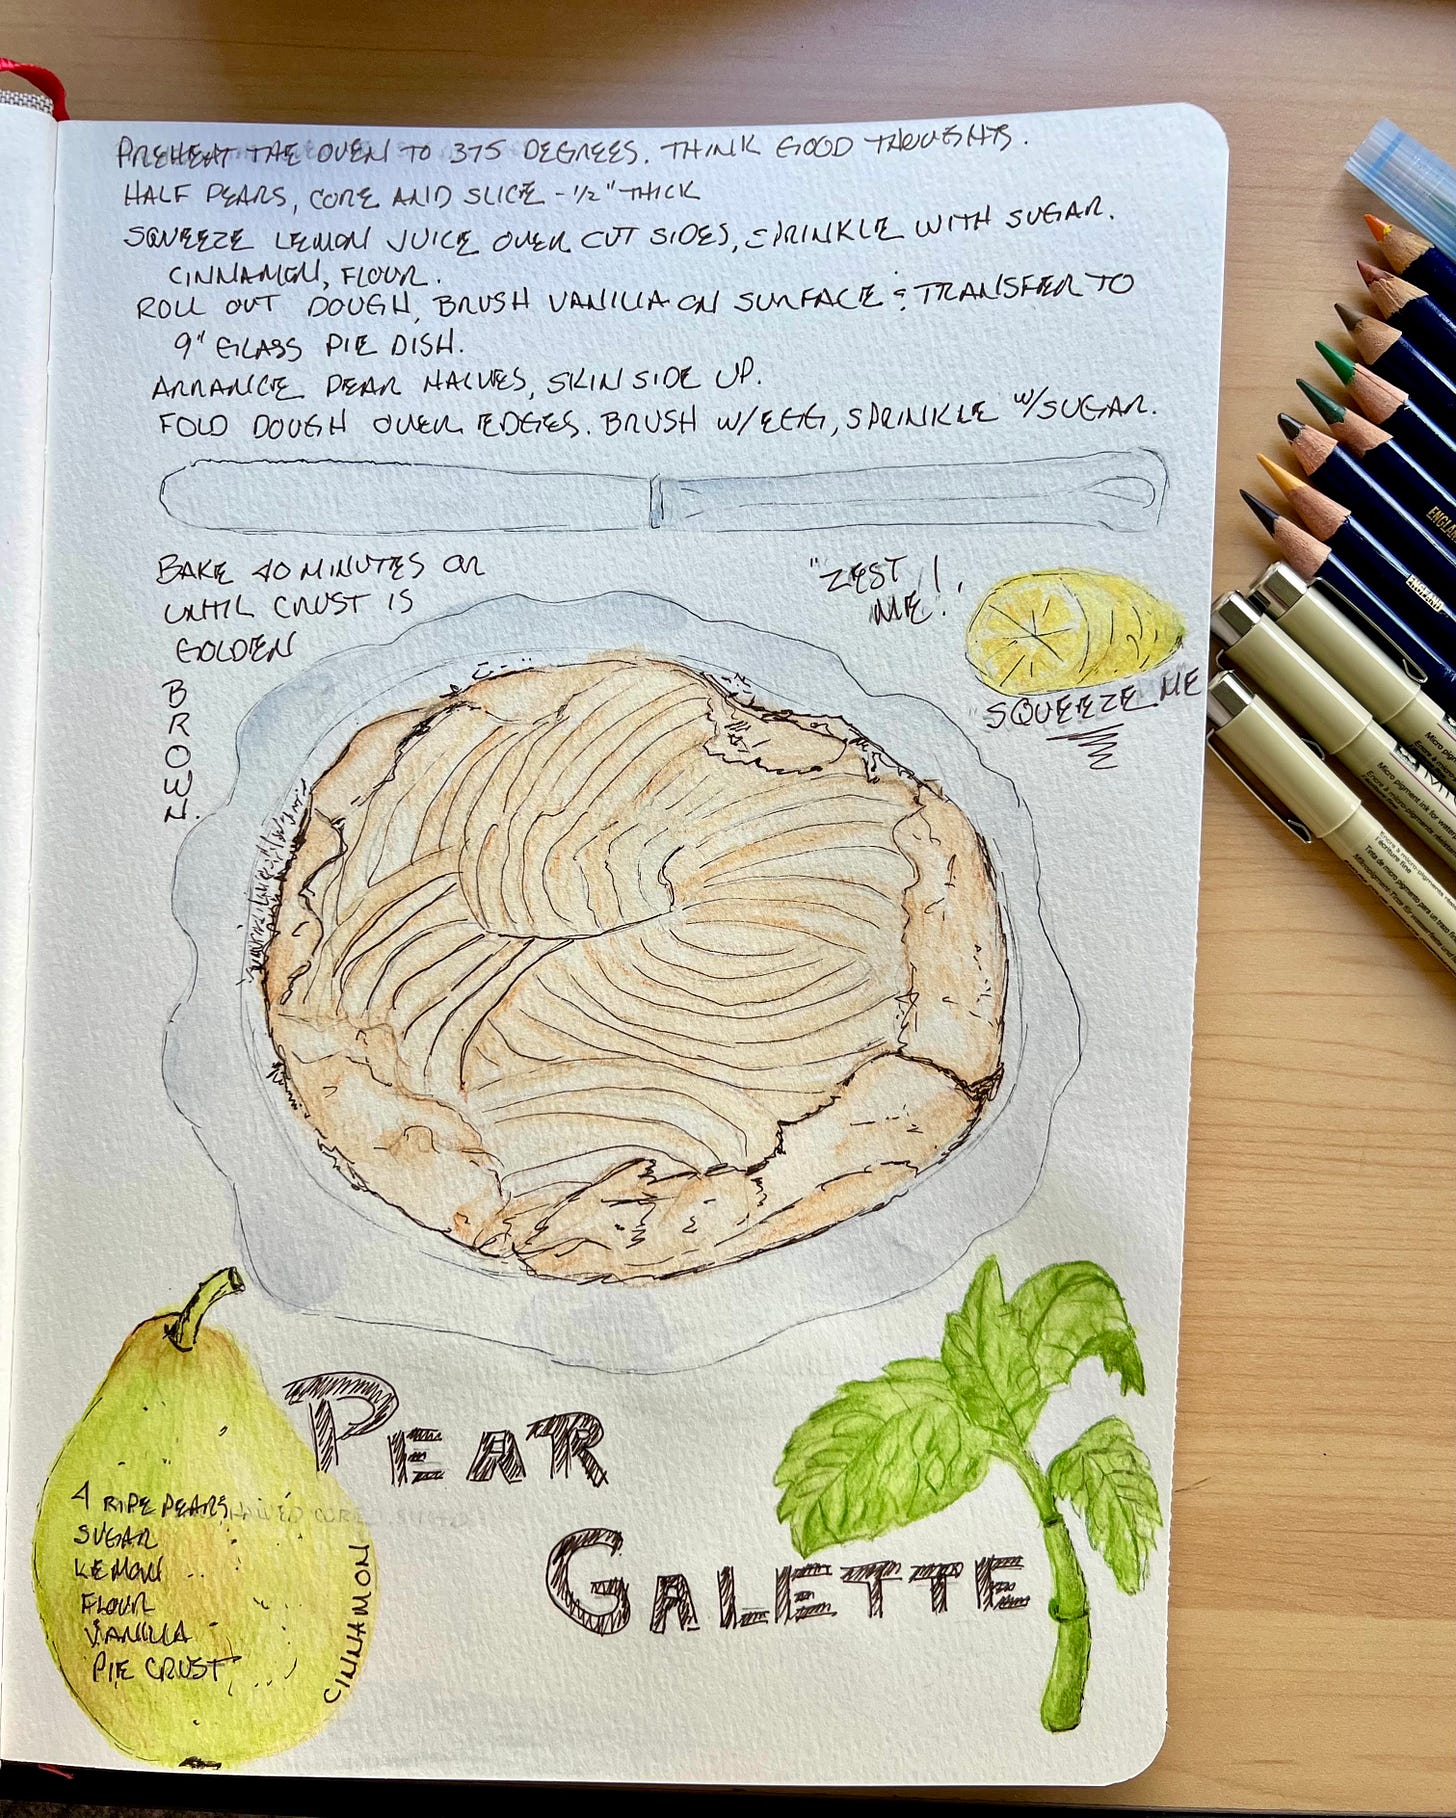 PREHEAT THE OVEN TO 375 DEGREES. THINK GOOD THOUGHTS.
HALF PEARS, CORE AND SLICE - 1/2" THICK
SQUEEZE LEMON JUICE OVER CUT SIDES, SPRINKLE WITH SUGAR.
CINNAMON, FLOUR.
ROLL OUT DOUGH, BRUSH VANILLA ON SURFACE & TRANSFER TO
9" GLASS PIE DISH.
ARRANGE PEAR HALVES, SKIN SIDE UP.
FOLD DOUGH OVER EDGES. BRUSH W/EGG, SPRINKLE W/SUGAR.
BAKE 40 MINUTES OR
UNTIL CRUST IS
GOLDEN
BROWN.
"ZEST
ME!"
"SQUEEZE ME
PEAR
GALETTE
4 RIPE PEARS
SUGAR
LEMON
FLOUR
VANILLA
PIE CRUST
CINNAMON
ENGLAND
ENGLAND
Micro pigment ink for water